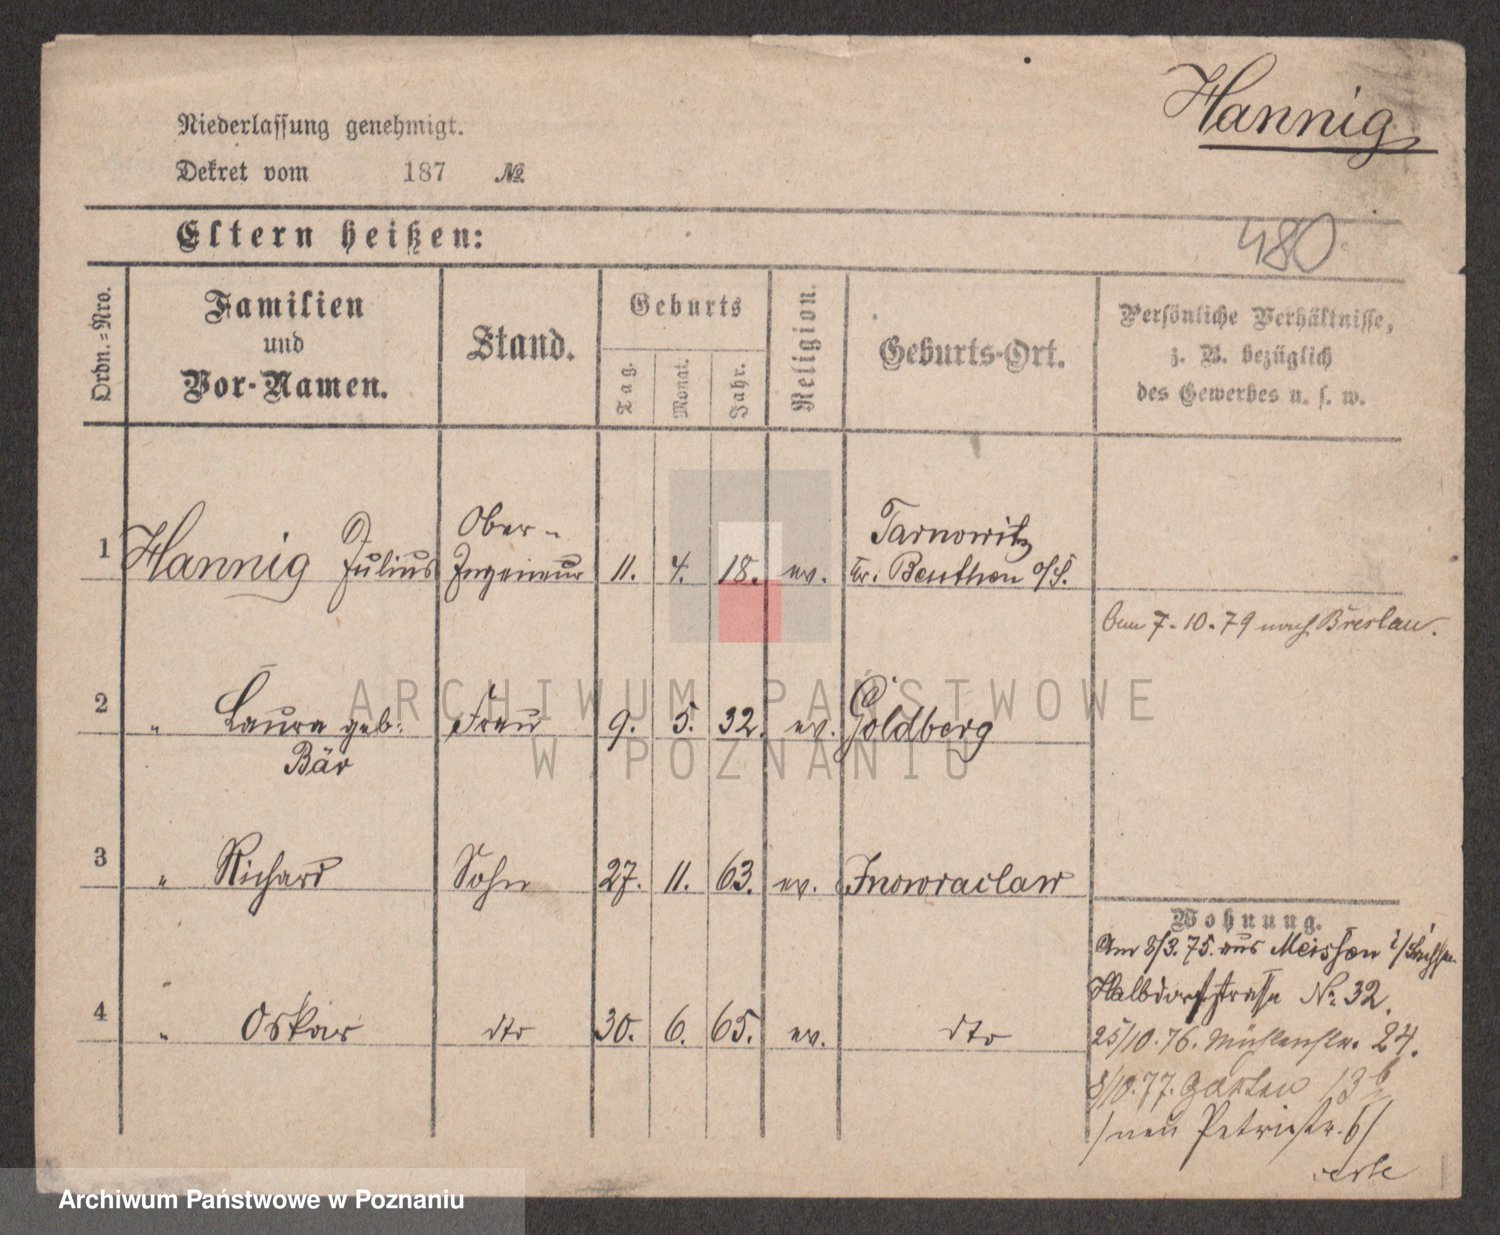 Hannig
Niederlassung genehmigt.
Dekret vom 187 №
480
Eltern heißen:
Ordn.-Nro.
Familien
und
Vor-Namen.
Stand.
Geburts
Tag.
Monat.
Jahr.
Religion.
Geburts-Ort.
Persönliche Verhältnisse,
z. B. bezüglich
des Gewerbes u. s. w.
1 Hannig Julius Ober-Ingenieur 11. 4. 18. ev. Tarnowitz Kr. Beuthen o/S.
7.10.79 nach Breslau.
2 " Laura geb: Bär Frau 9. 5. 32. ev. Goldberg
3 " Richard Sohn 27. 11. 63. ev. Inowraclaw
Wohnung.
Am 8/3.75. aus Meissen i/Sachsen
Halbdorfstrasse No. 32.
4 " Oskar dto 30. 6. 65. ev. dto
25/10.76. Mühlenstr. 24.
8/10.77. Garten 13b
/neu Petristr. 6/
ARCHIWUM PAŃSTWOWE
W POZNANIU
Archiwum Państwowe w Poznaniu